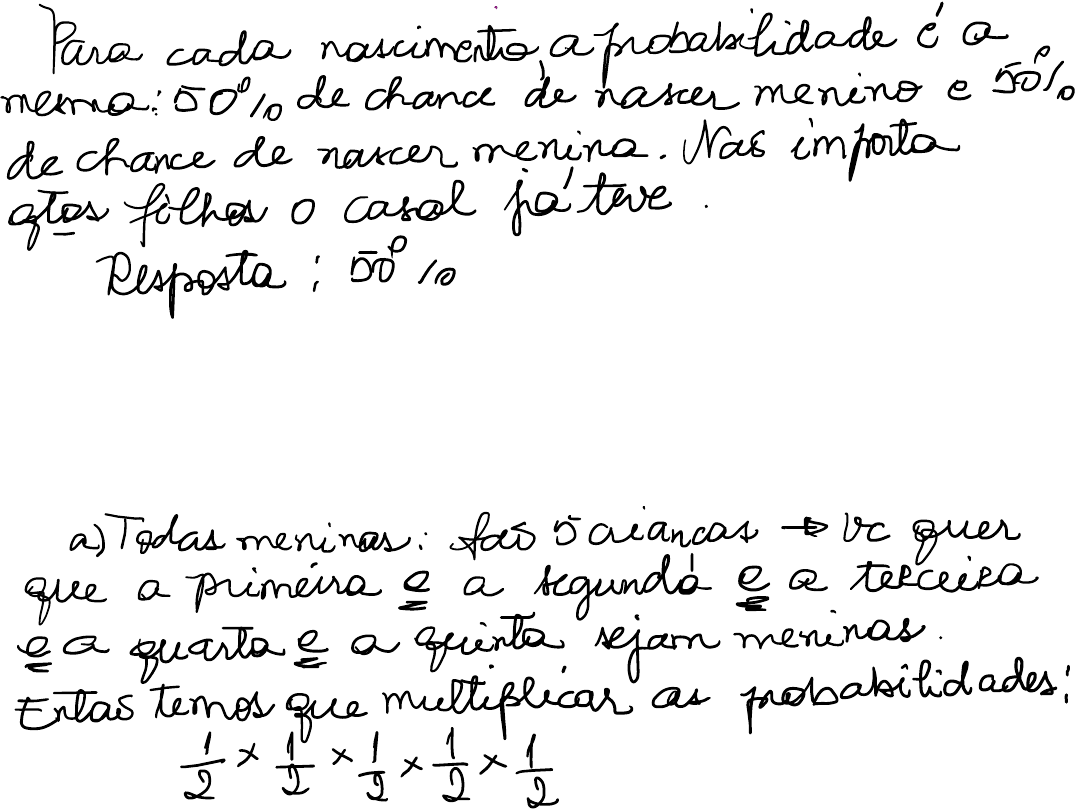 Para cada nascimento, a probabilidade é a
mesma: 50% de chance de nascer menino e 50%
de chance de nascer menina. Não importa
qtos filhos o casal já teve.
Resposta: 50%
a) Todas meninas: são 5 crianças → vc quer
que a primeira e a segunda e a terceira
e a quarta e a quinta sejam meninas.
Então temos que multiplicar as probabilidades:
1/2 × 1/2 × 1/2 × 1/2 × 1/2